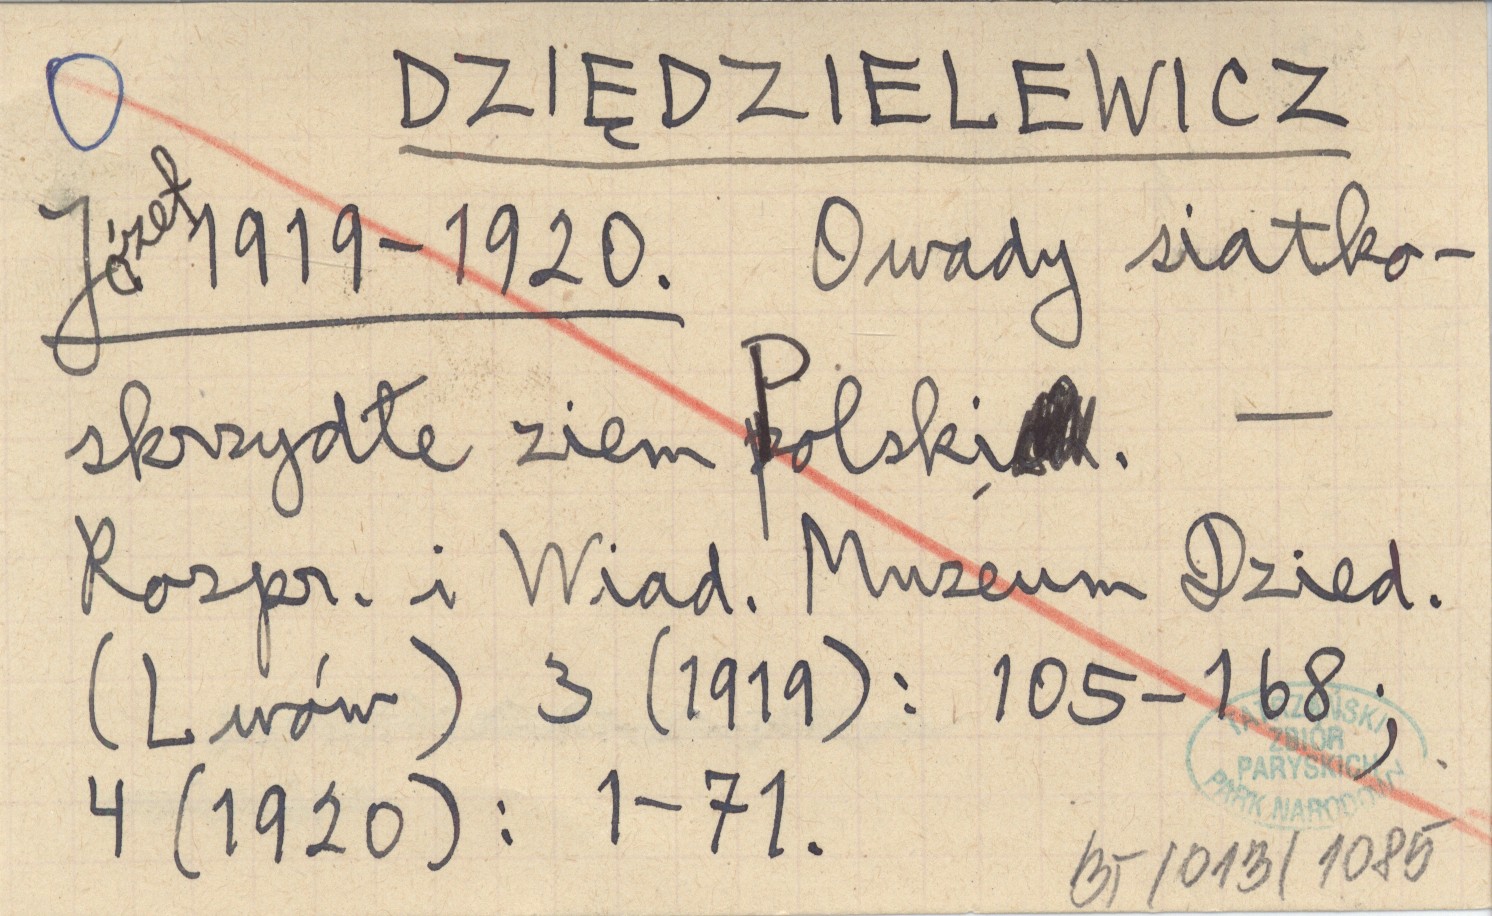 DZIĘDZIELEWICZ
Józef 1919-1920. Owady siatko-
skrzydłe ziem Polski. —
Rozpr. i Wiad. Muzeum Dzied.
(Lwów) 3 (1919): 105-168;
4 (1920): 1-71.
TATRZAŃSKI
ZBIÓR
PARYSKICH
PARK NARODOWY
BT/013/1085